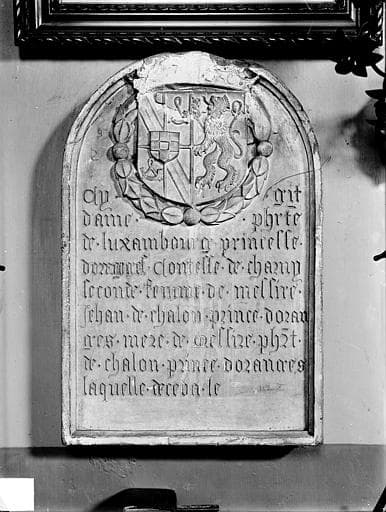 Cy · git
dame · phẽte
de · luxambourg · princesse
dorenges · Contesse · de · champ
seconde · femme · de · messire ·
Jehan · de · chalon · prince · doran
ges · mere · de · messire · phẽt ·
de · chalon · prince · doranges
laquelle · deceda · le